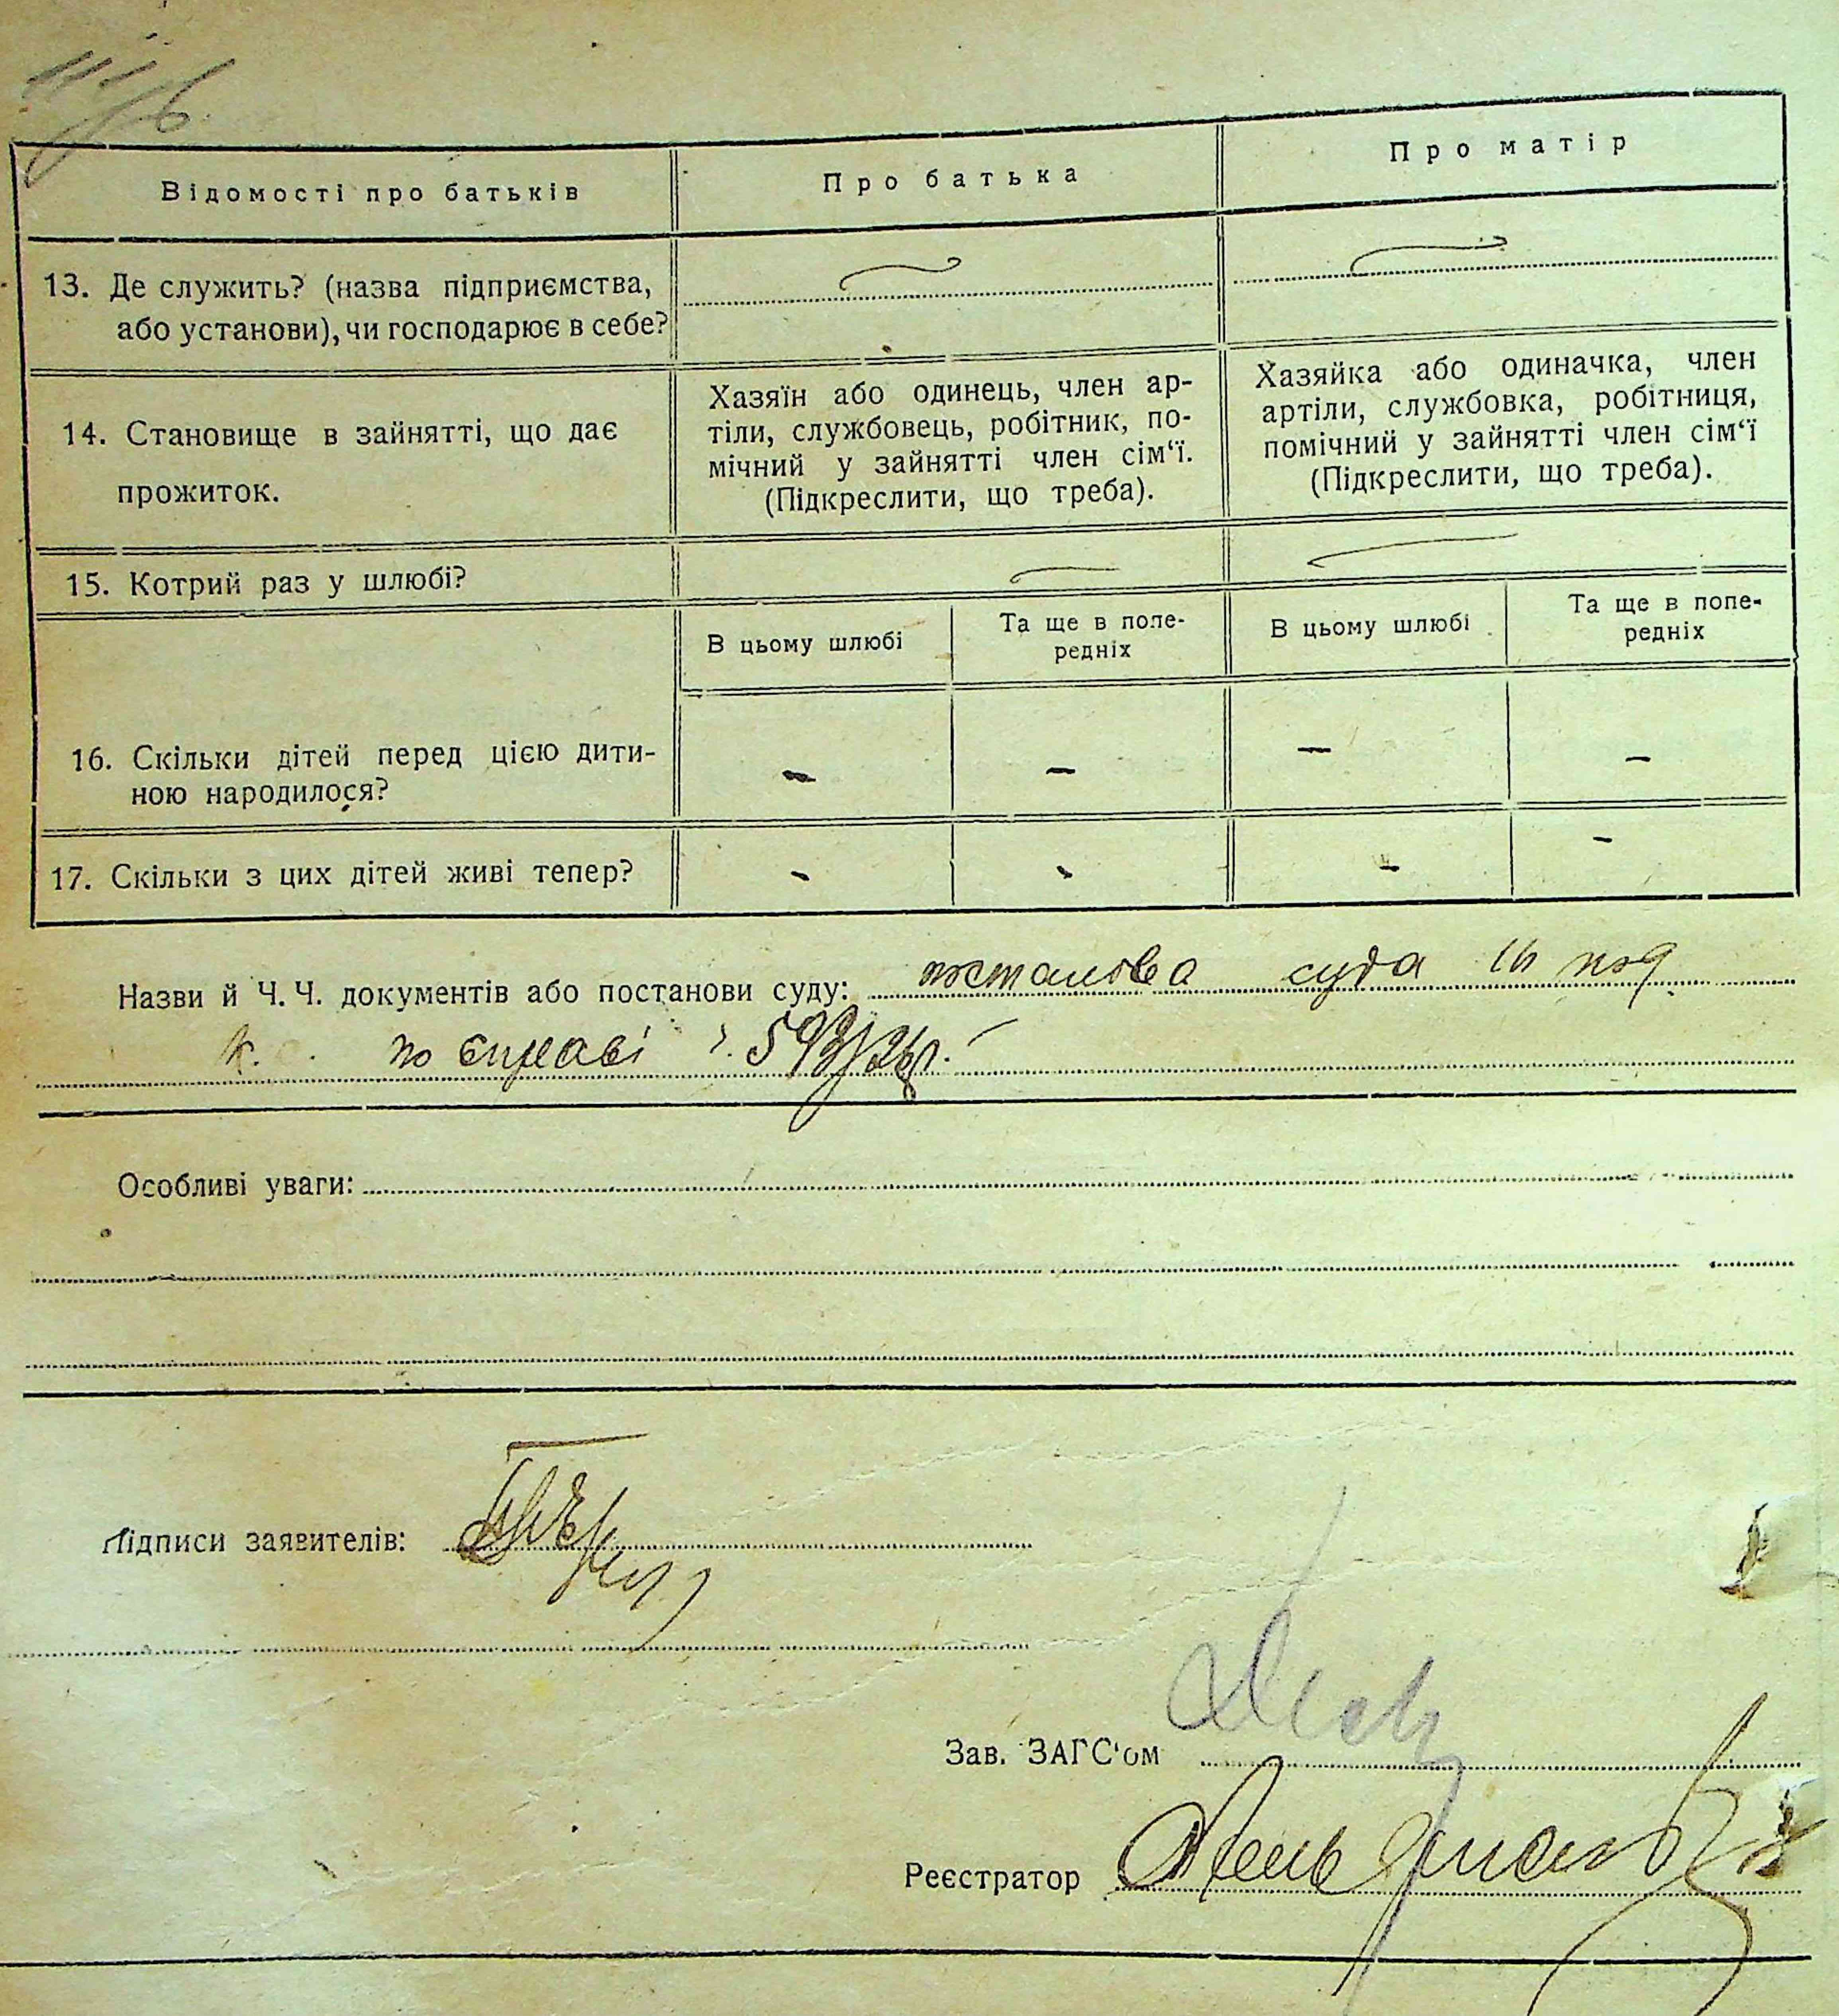 Відомості про батьків
Про батька
Про матір
13. Де служить? (назва підприємства,
або установи), чи господарює в себе?
14. Становище в зайнятті, що дає
прожиток.
Хазяїн або одинець, член ар-
тіли, службовець, робітник, по-
мічний у зайнятті член сім‘ї.
(Підкреслити, що треба).
Хазяйка або одиначка, член
артіли, службовка, робітниця,
помічний у зайнятті член сім‘ї
(Підкреслити, що треба).
15. Котрий раз у шлюбі?
В цьому шлюбі
Та ще в попе-
редніх
В цьому шлюбі
Та ще в попе-
редніх
16. Скільки дітей перед цією дити-
ною народилося?
– – – –
17. Скільки з цих дітей живі тепер?
– – – –
Назви й Ч. Ч. документів або постанови суду: постанова суда 16
по справі
Особливі уваги:
Підписи заявителів:
Зав. ЗАГС‘ом
Реєстратор